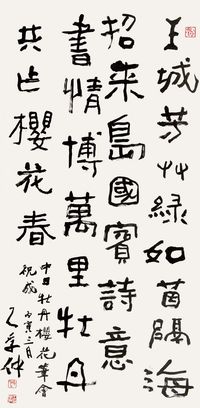 王城芳艸綠如茵隔海
招来島國賓詩意
書情博萬里牡丹
共櫻花春
中日牡丹櫻花筆會
祝成 丙寅三月
王学仲